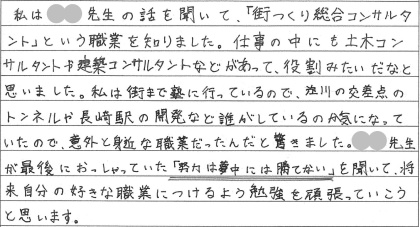 私は 先生の話を聞いて、「街つくり総合コンサルタ
ント」という職業を知りました。仕事の中にも土木コン
サルタントや建築コンサルタントなどがあって、役割みたいだなと
思いました。私は街まで塾に行っているので、の交差点の
トンネルや長崎駅の開発など誰がしているのか気になって
いたので、意外と身近な職業だったんだと驚きました。 先生
が最後におっしゃっていた「努力は夢中には勝てない」を聞いて、将
来自分の好きな職業につけるよう勉強を頑張っていこう
と思います。